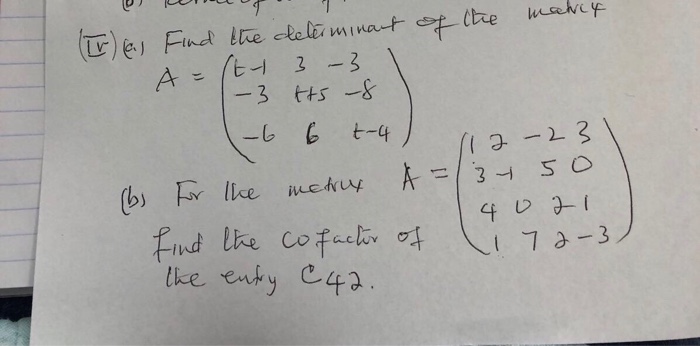 (IV) (a) Find the determinant of the matrix
A = ( t-1 3 -3
-3 t+5 -8
-6 6 t-4 )
(b) For the matrix A = ( 1 2 -2 3
3 -1 5 0
4 0 2 1
1 7 2 -3 )
find the cofactor of
the entry C42.